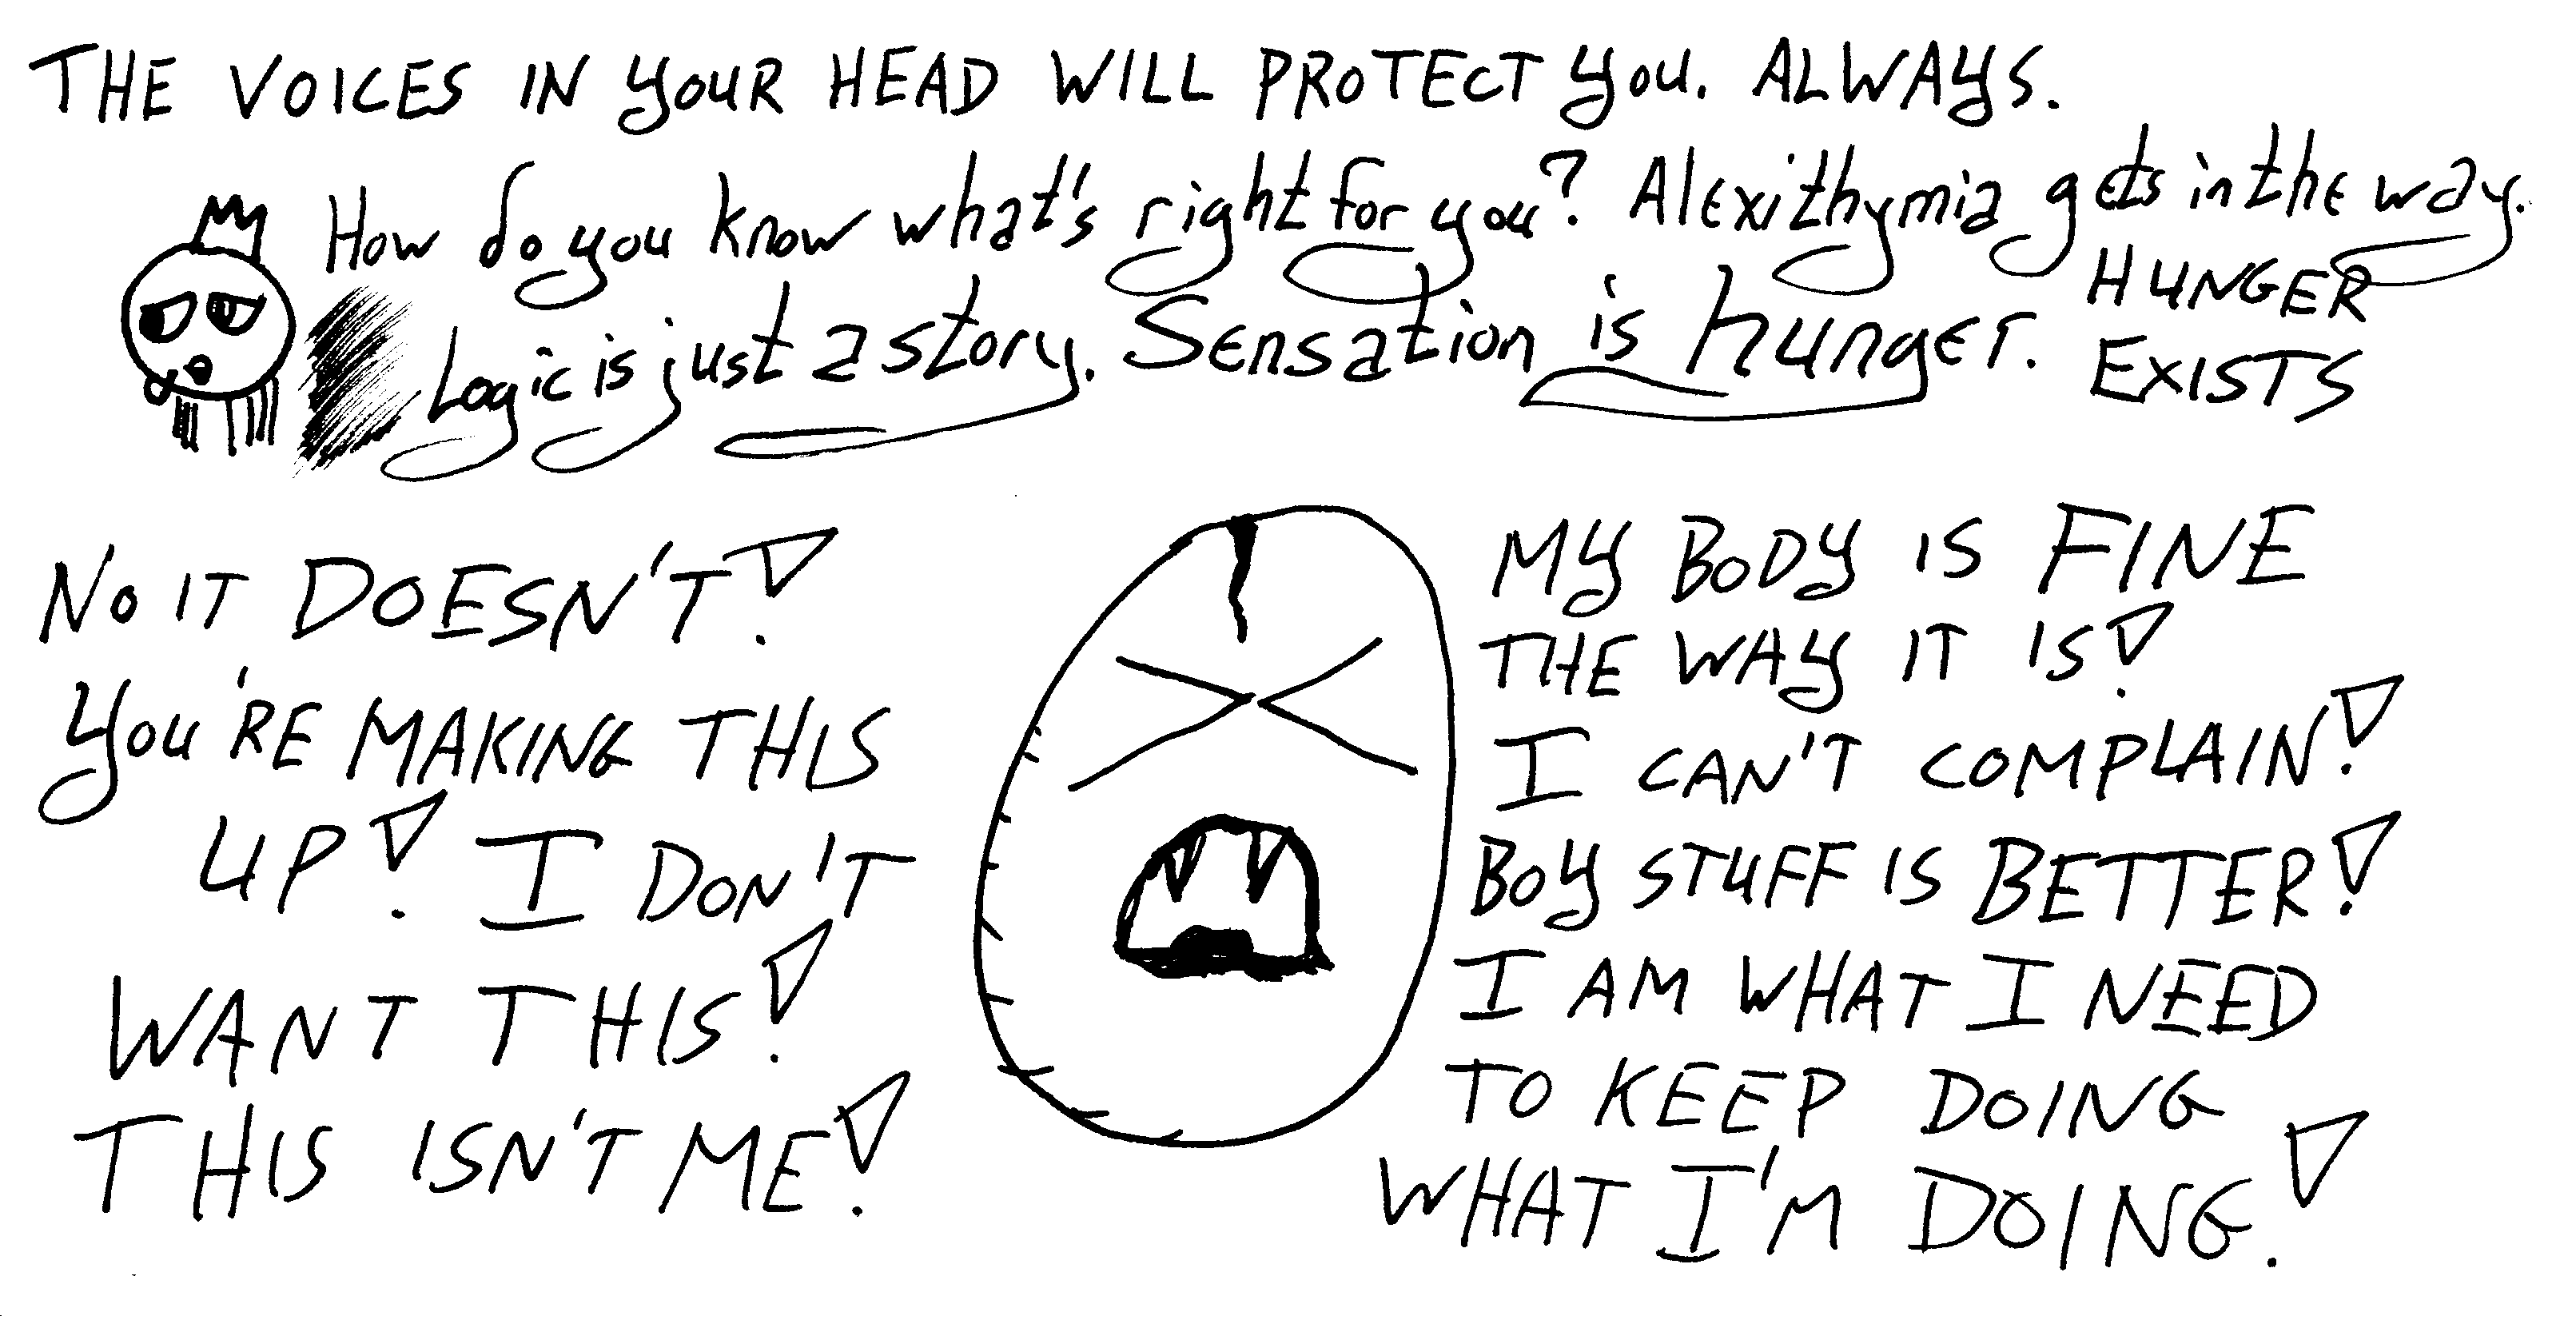 THE VOICES IN YOUR HEAD WILL PROTECT YOU. ALWAYS.
How do you know what's right for you? Alexithymia gets in the way.
Logic is just a story. Sensation is hunger.
HUNGER
EXISTS
NO IT DOESN'T!
YOU'RE MAKING THIS
UP! I DON'T
WANT THIS!
THIS ISN'T ME!
MY BODY IS FINE
THE WAY IT IS!
I CAN'T COMPLAIN!
BOY STUFF IS BETTER!
I AM WHAT I NEED
TO KEEP DOING
WHAT I'M DOING!